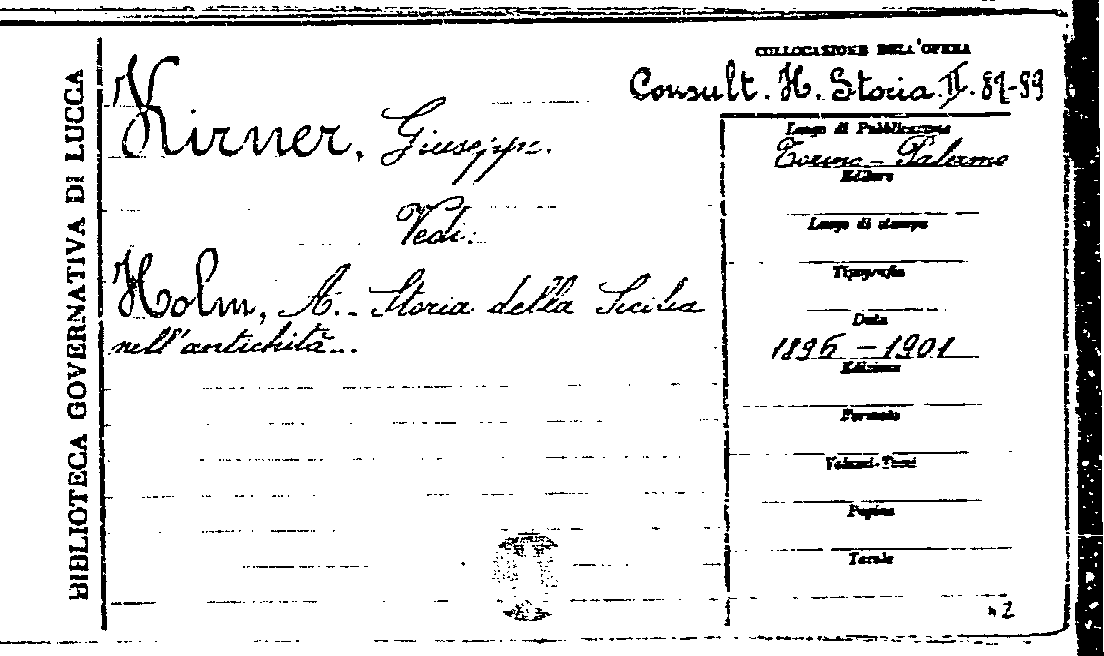 BIBLIOTECA GOVERNATIVA DI LUCCA
COLLOCAZIONE DELL'OPERA
Consult. H. Storia II. 87-89
Kirner, Giuseppe.
Vedi:
Holm, A. - Storia della Sicilia
nell'antichità...
Luogo di Pubblicazione
Torino - Palermo
Editore
Luogo di stampa
Tipografia
Data
1896 - 1901
Edizione
Formato
Volumi-Tomi
Pagine
Tavole